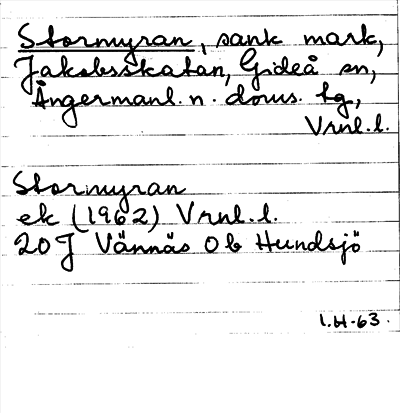 Stormyran, sank mark,
Jakobsskatan, Gideå sn,
Ångermanl. n. doms. tg,
Vrnl.l.
Stormyran
ek (1962) Vrnl.l.
20J Vännäs Ob Hundsjö
I.H-63.